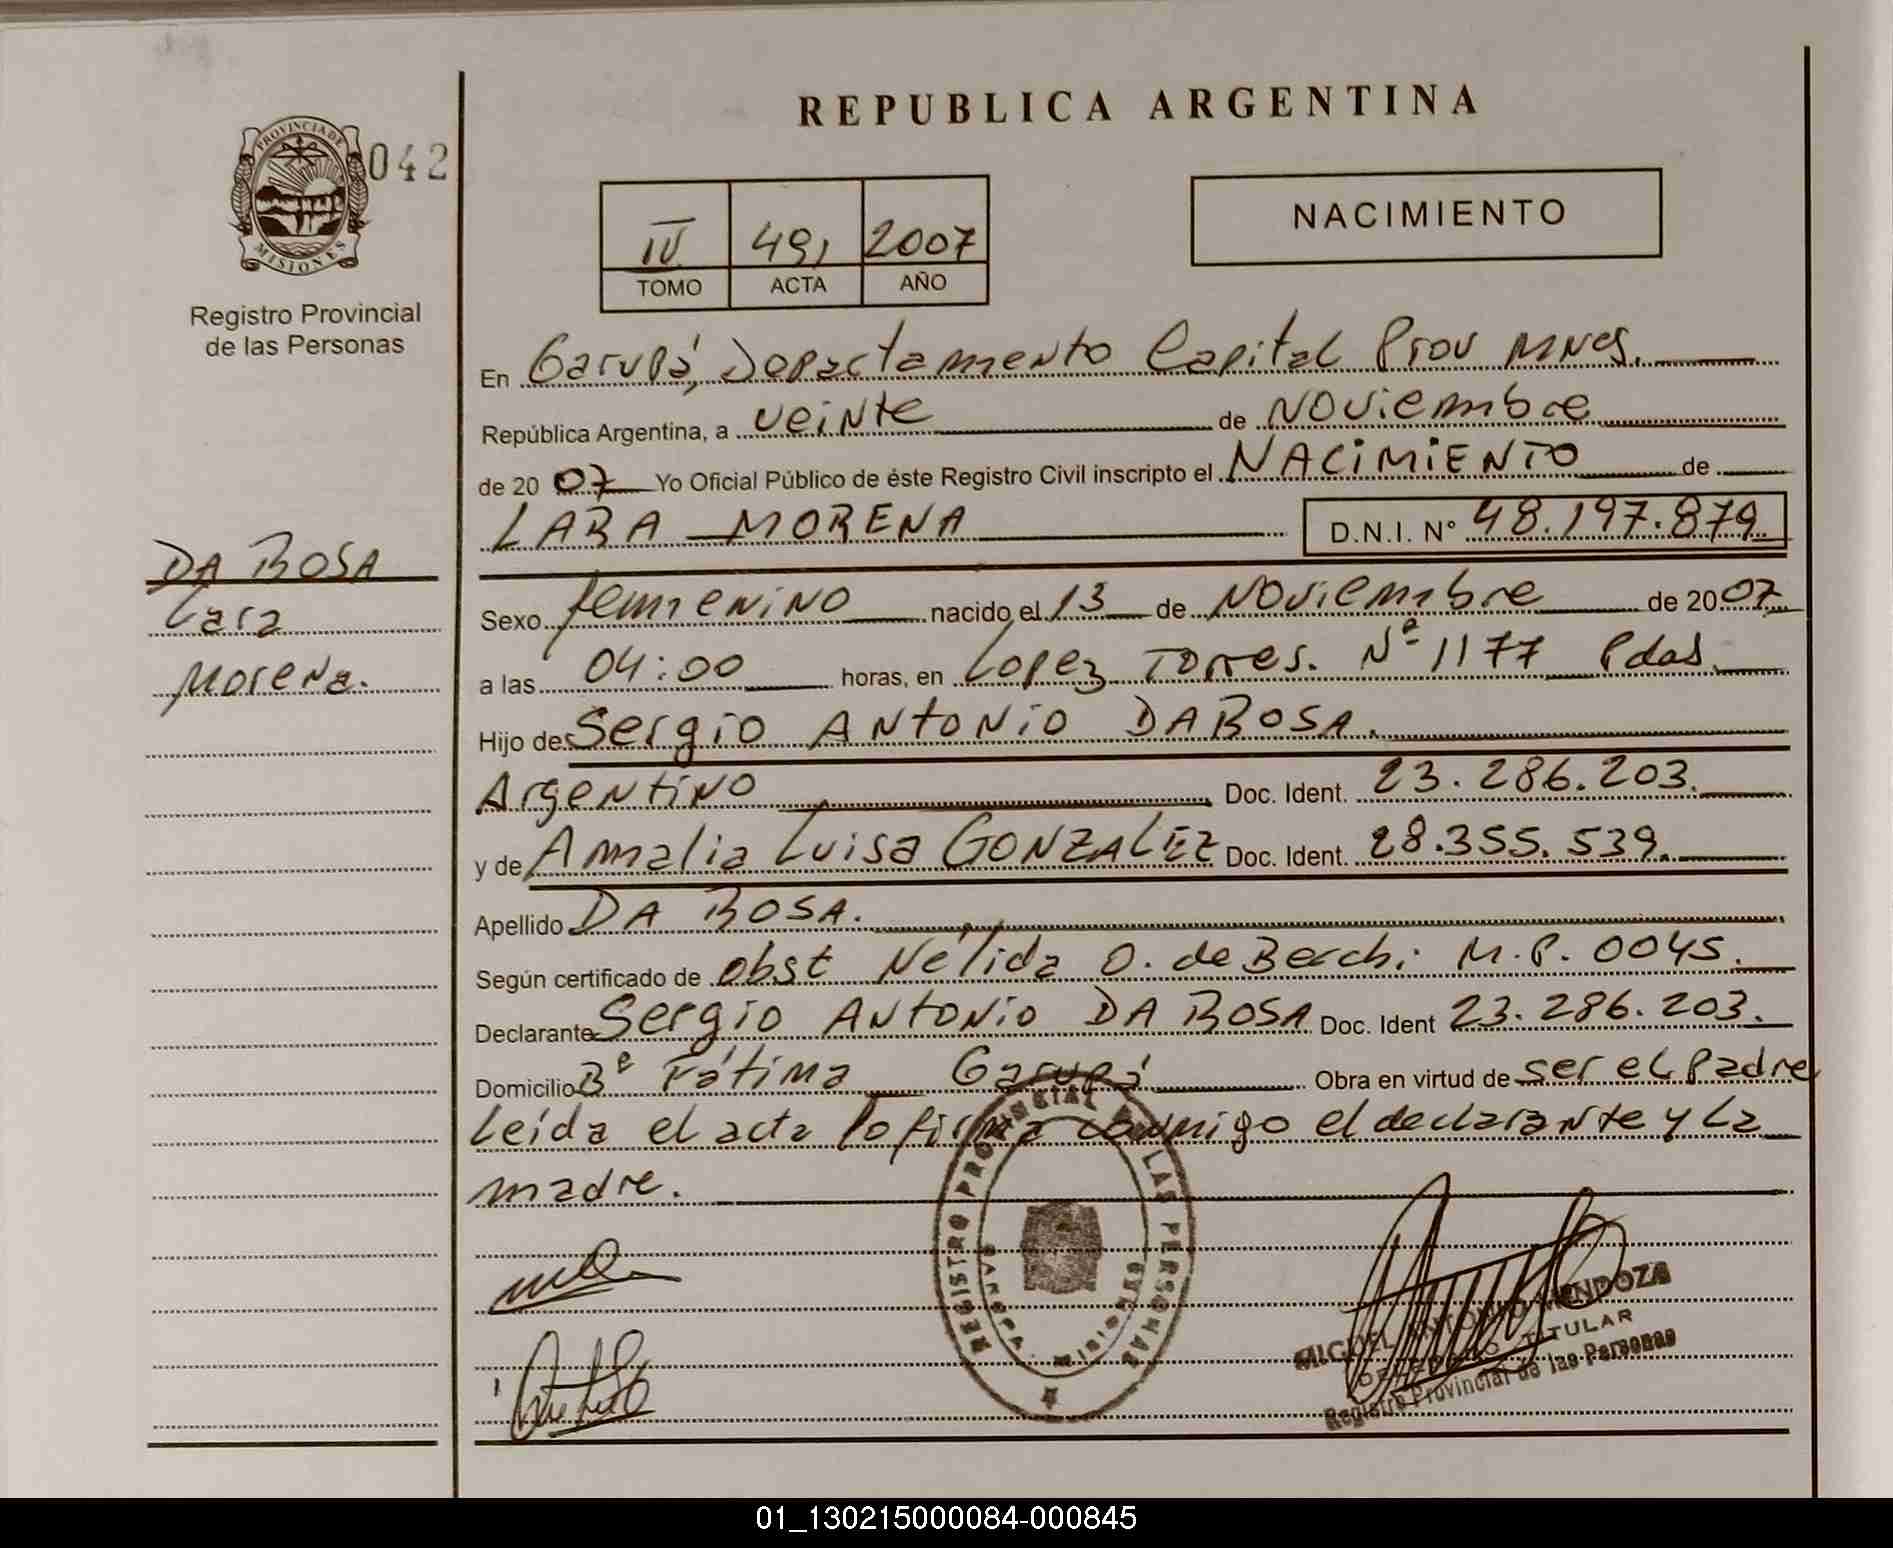 REPUBLICA ARGENTINA
PROVINCIA DE
MISIONES
042
Registro Provincial
de las Personas
IV 491 2007
TOMO ACTA AÑO
NACIMIENTO
En Garupá, Departamento Capital Prov Mnes.
República Argentina, a veinte de Noviembre
de 2007 Yo Oficial Público de éste Registro Civil inscripto el NACIMIENTO de
LARA MORENA D.N.I. Nº 48.197.879
DA ROSA
Lara
Morena.
Sexo femenino nacido el 13 de Noviembre de 2007
a las 04:00 horas, en Lopez Torres. Nº 1177 Pdas.
Hijo de Sergio ANtoNio DA ROSA.
Argentino Doc. Ident. 23.286.203.
y de Amalia Luisa GONZALEZ Doc. Ident. 28.355.539.
Apellido DA ROSA.
Según certificado de obst Nélida O. de Berchi M.P. 0045.
Declarante Sergio ANtoNio DA ROSA Doc. Ident 23.286.203.
Domicilio Bº Fátima Garupá Obra en virtud de ser el Padre
Leída el acta lo firma conmigo el declarante y La
madre.
REGISTRO PROVINCIAL DE LAS PERSONAS
GARUPA MISIONES
MIGUEL ANTONIO MENDOZA
TITULAR
Registro Provincial de las Personas
01_130215000084-000845